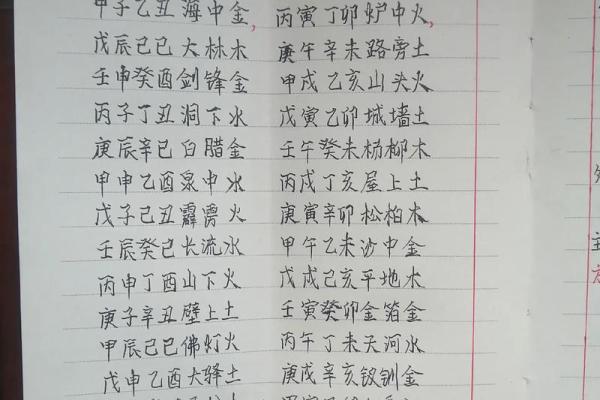 甲子乙丑海中金, 丙寅丁卯炉中火,
戊辰己巳大林木 庚午辛未路旁土
壬申癸酉剑锋金 甲戌乙亥山头火
丙子丁丑洞下水 戊寅乙卯城墙土
庚辰辛巳白腊金 壬午癸未杨柳木
甲申乙酉泉中水 丙戌丁亥屋上土
戊子己丑霹雳火 庚寅辛卯松柏木
壬辰癸巳长流水 甲午乙未沙中金
丙申丁酉山下火 戊戌己亥平地木
庚子辛丑壁上土 壬寅癸卯金箔金
甲辰己巳佛灯火 丙午丁未天河水
戊申乙酉大驿土 庚戌辛亥钗钏金